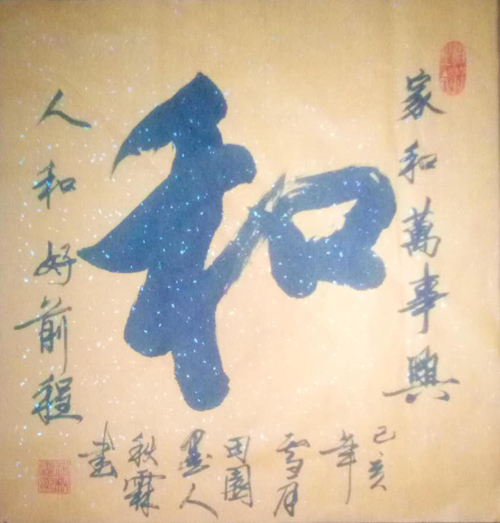 家和萬事興
和
人和好前程
己亥
年
雪月
田園
墨人
秋霖
書